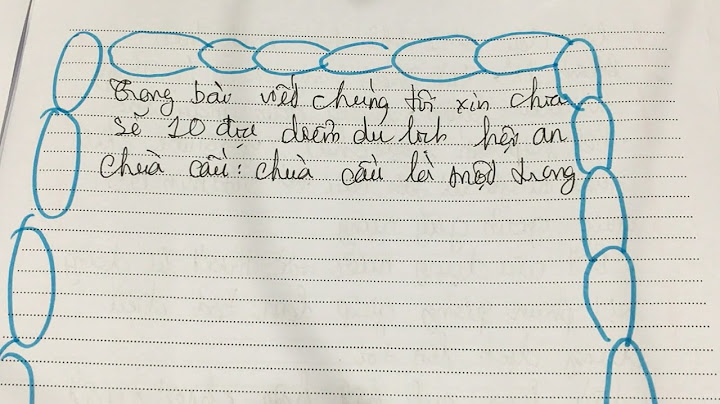 Trong bài viết chúng tôi xin chia
sẻ 10 địa điểm du lịch hội an
chùa cầu: chùa cầu là một trong